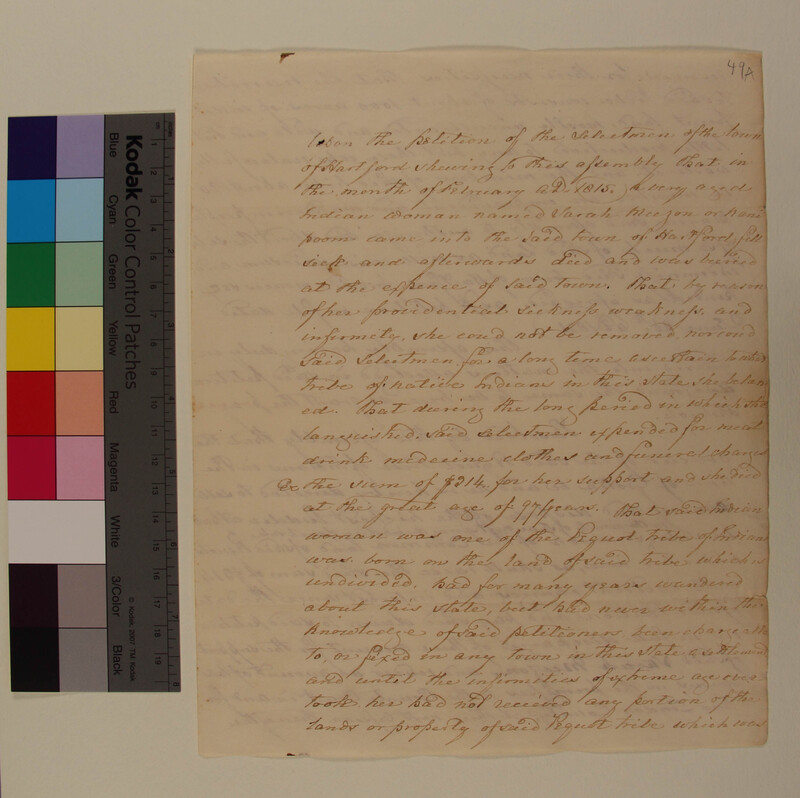 49A
Upon the petition of the Selectmen of the town
of Hartford shewing to this assembly that in
the month of February AD 1815. a very aged
Indian woman named Sarah or
poom came into the said town of Hartford fell
sick and afterwards died and was buried
at the expence of said town. That by reason
of her providential sickness weakness, and
infirmity, she could not be removed, nor could
said Selectmen for a long time ascertain to what
tribe of native Indians in this State she belong
ed. That during the long period in which she
languished, said Selectmen expended for meat
drink medicine clothes and funeral charges
&c the sum of $214, for her support and she died
at the great age of 97 years. That said Indian
woman was one of the Pequot tribe of Indians
was born on the land of said tribe which is
undivided. had for many years wandered
about this state, but had never within the
knowledge of said petitioners been chargeable
to, or fixed in any town in this State a settlement
and until the infirmities of extreme age over
took her had not received any portion of the
lands or property of said Pequot tribe which was
Kodak Color Control Patches
Blue
Cyan
Green
Yellow
Red
Magenta
White
3/Color
Black
© Kodak, 2007 TM: Kodak